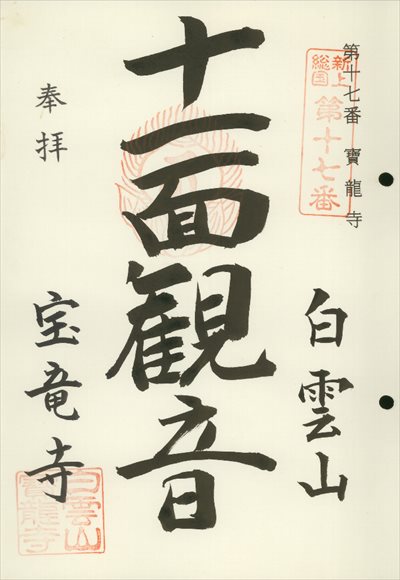 第十七番 寶龍寺
新上
総国
第十七番
白雲山
十一面観音
奉拝
宝竜寺
白雲山
寶龍寺